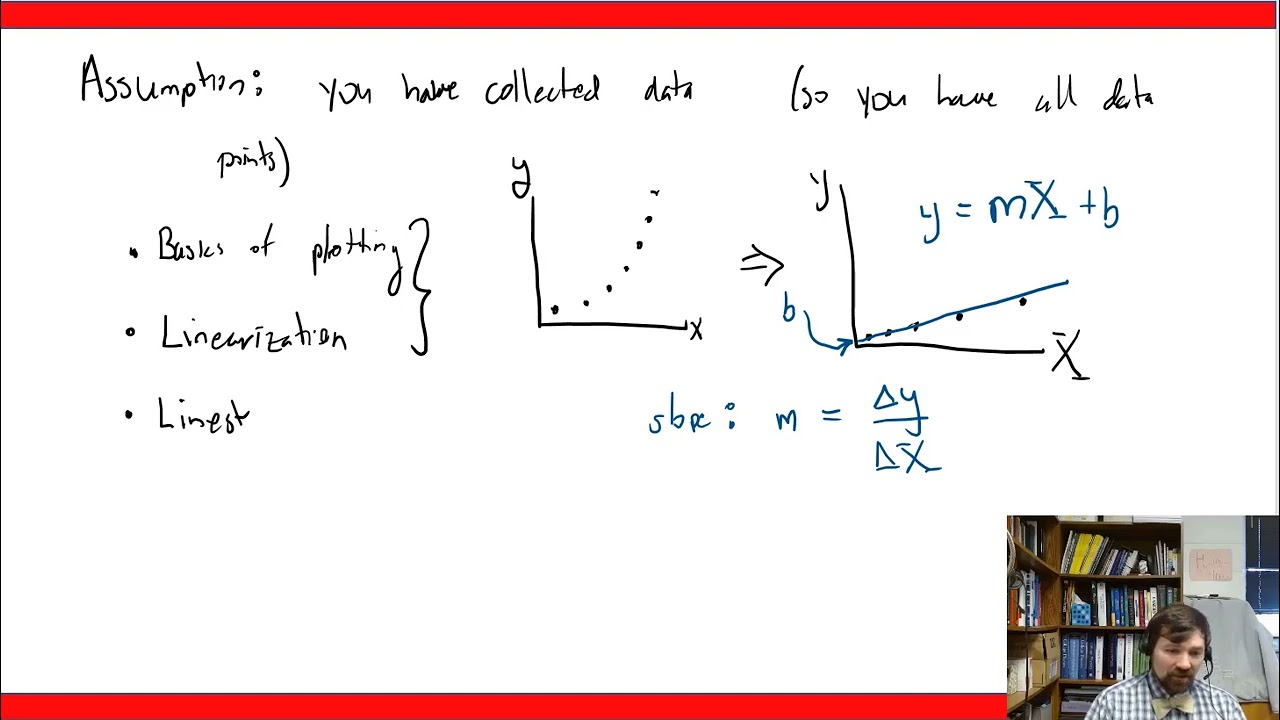 Assumption: you have collected data (so you have all data
points)
• Basics of plotting
• Linearization
• Linest
y
x
⇒
y
y = mX + b
b
X
slope: m = Δy
ΔX